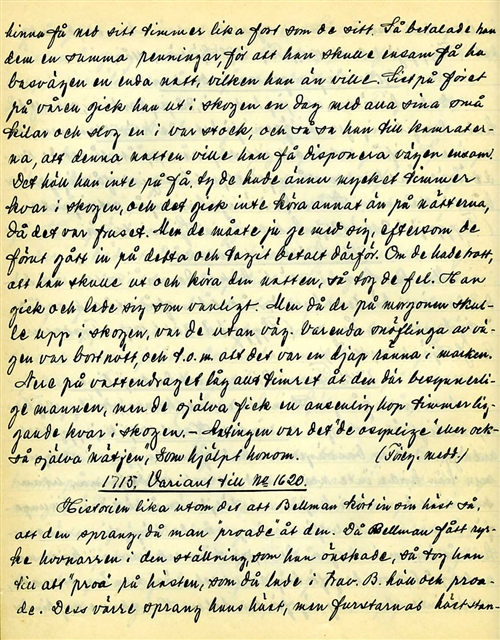 hinna få ned sitt timmer lika fort som de sitt. Så betalade han
dem en summa penningar, för att han skulle ensam få ha
basvägen en enda natt, vilken han än ville. Sist på föret
på våren gick han ut i skogen en dag med alla sina små
kilar och slog en i var stock, och så sa han till kamrater-
na, att denna natten ville han få disponera vägen ensam.
Det höll han inte på få, ty de hade ännu mycket timmer
kvar i skogen, och det gick inte köra annat än på nätterna,
då det var fruset. Men de måste ju ge med sig, eftersom de
förut gått in på detta och tagit betalt därför. Om de hade trott,
att han skulle ut och köra den natten, så tog de fel. Han
gick och lade sig som vanligt. Men då de på morgonen skul-
le upp i skogen, var de utan väg. Varenda snöflinga av vä-
gen var bortnött, och t.o.m. att det var en djup ränna i marken.
Nere på vattendraget låg allt timret åt den där besynnerli-
ge mannen, men de själva fick en ansenlig hop timmer lig-
gande kvar i skogen. – Antingen var det "de osynlige" eller ock-
så själva "näcken", som hjälpt honom. (Förty. medd.)
1715, Variant till No 1620.
Historien lika utom det att Bellman kört in sin häst så,
att den sprang, då man "proade" åt den. Då Bellman fått
hovnarren i den ställning, som han önskade, så tog han
till att "proa" på hästen, som då lade i trav. B. höll och proa-
de. Dess värre sprang hans häst, men furstarnas häst stan-